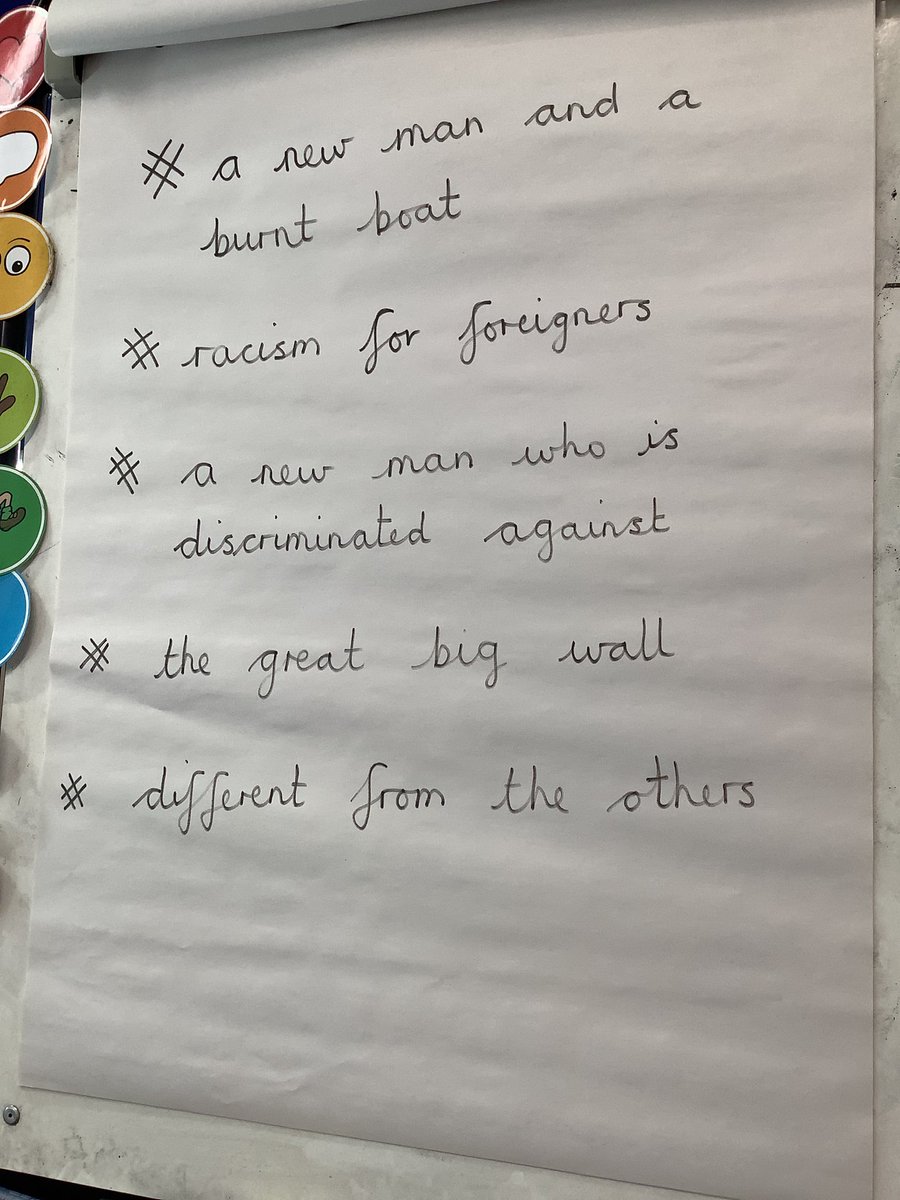 # a new man and a
burnt boat
# racism for foreigners
# a new man who is
discriminated against
# the great big wall
# different from the others